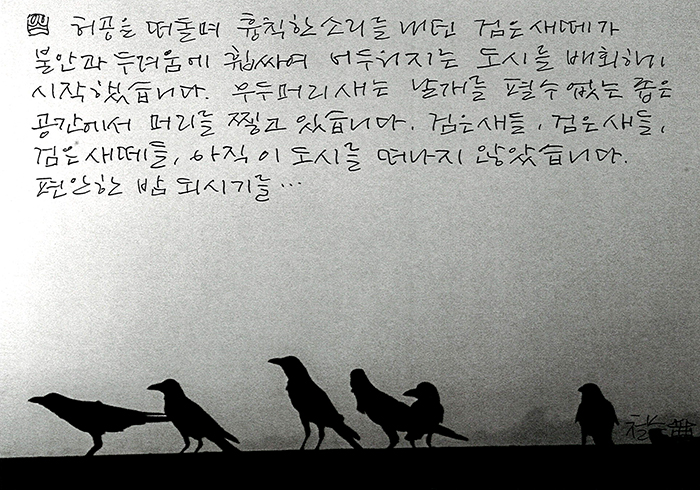 허공을 떠돌며 흉칙한 소리를 내던 검은 새떼가
불안과 두려움에 휩싸여 어두워지는 도시를 배회하기
시작했습니다. 우두머리 새는 날개를 펼 수 없는 좁은
공간에서 머리를 찧고 있습니다. 검은 새들, 검은 새들,
검은 새떼들, 아직 이 도시를 떠나지 않았습니다.
편안한 밤 되시기를…